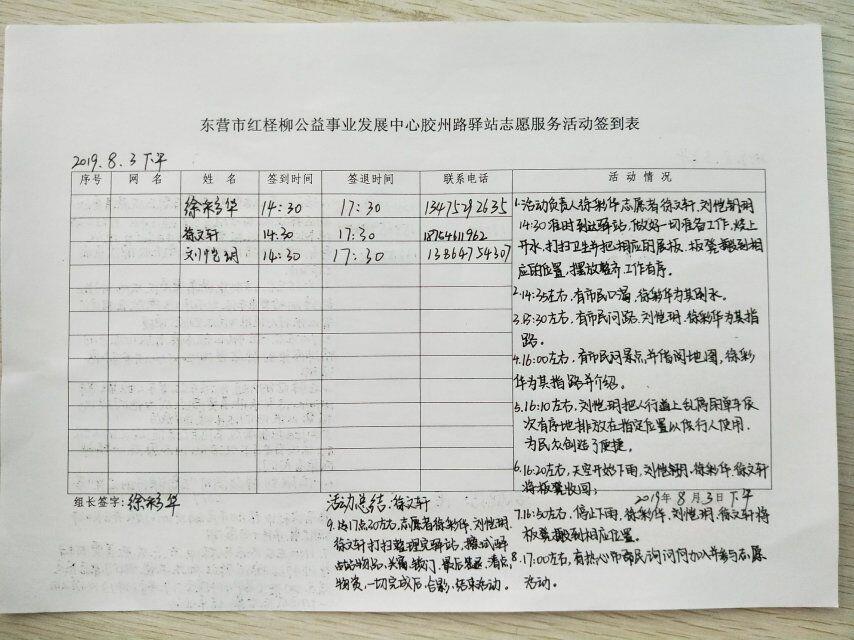 东营市红柽柳公益事业发展中心胶州路驿站志愿服务活动签到表
2019.8.3下午
序号 网 名 姓 名 签到时间 签退时间 联系电话 活 动 情 况
徐彩华 14:30 17:30 13475292635
徐文轩 14:30 17:30 18754611962
刘恺玥 14:30 17:30 13864754307
1.活动负责人徐彩华志愿者徐文轩、刘恺钥玥
14:30准时到达驿站,做好一切准备工作,烧上
开水,打扫卫生并把相应的展板、板凳搬到相
应的位置,摆放整齐,工作有序。
2.14:35左右,有市民口渴,徐彩华为其倒水。
3.15:30左右,有市民问路,刘恺玥、徐彩华为其指
路。
4.16:00左右,有市民问景点并借阅地图,徐彩
华为其指路并介绍。
5.16:10左右,刘恺玥把人行道上乱停的单车依
次有序地排放在指定位置以供行人使用,
为民众创造了便捷。
6.16:20左右,天空开始下雨,刘恺玥、徐彩华、徐文轩
将板凳收回;
组长签字:徐彩华
活动总结:徐文轩
2019年8月3日下午
7.16:50左右,停止下雨,徐彩华、刘恺玥、徐文轩将
板凳搬到相应位置。
8.17:00左右,有热心市民询问何加入并参与志愿
活动。
9.17点20左右,志愿者徐彩华、刘恺玥、
徐文轩打扫整理完驿站,擦拭驿
站物品,关窗、锁门、最后签退、清点
物资,一切完成后,合影,结束活动。